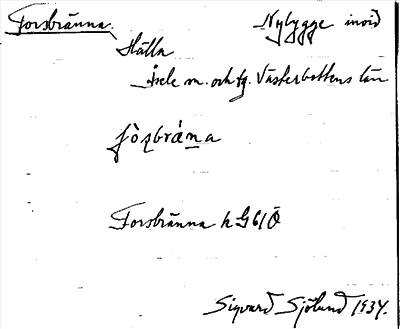 Forsbränna. Nybygge invid
Hälla
Åsele sn. och tg. Västerbottens län
Forsbränna h G 61 Ö
Sigvard Sjölund 1934.